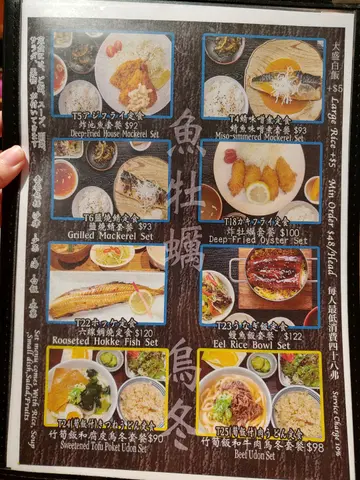 大盛白飯 +$5
Large Rice +$5
Min Order $48/Head
每人最低消費四十八元
Service Charge 10%
魚
牡
蠣
烏
冬
T5アジフライ定食
炸池魚套餐 $92
Deep-Fried House Mackerel Set
T4鯖味噌煮定食
鯖魚味噌煮套餐 $93
Miso-simmered Mackerel Set
T6塩焼鯖定食
鹽燒鯖套餐 $93
Grilled Mackerel Set
T18カキフライ定食
炸牡蠣套餐 $100
Deep-Fried Oyster Set
T22ホッケ定食
六線鯛燒定食$120
Roaseted Hokke Fish Set
T23うなぎ飯定食
鰻魚飯套餐 $122
Eel Rice Bowl Set
竹筍飯和腐皮烏冬套餐$90
Sweetened Tofu Poket Udon Set
竹筍飯和牛肉烏冬套餐 $98
Beef Udon Set
Set menu comes With Rice, Soup
Small dish, Salad, Fruits